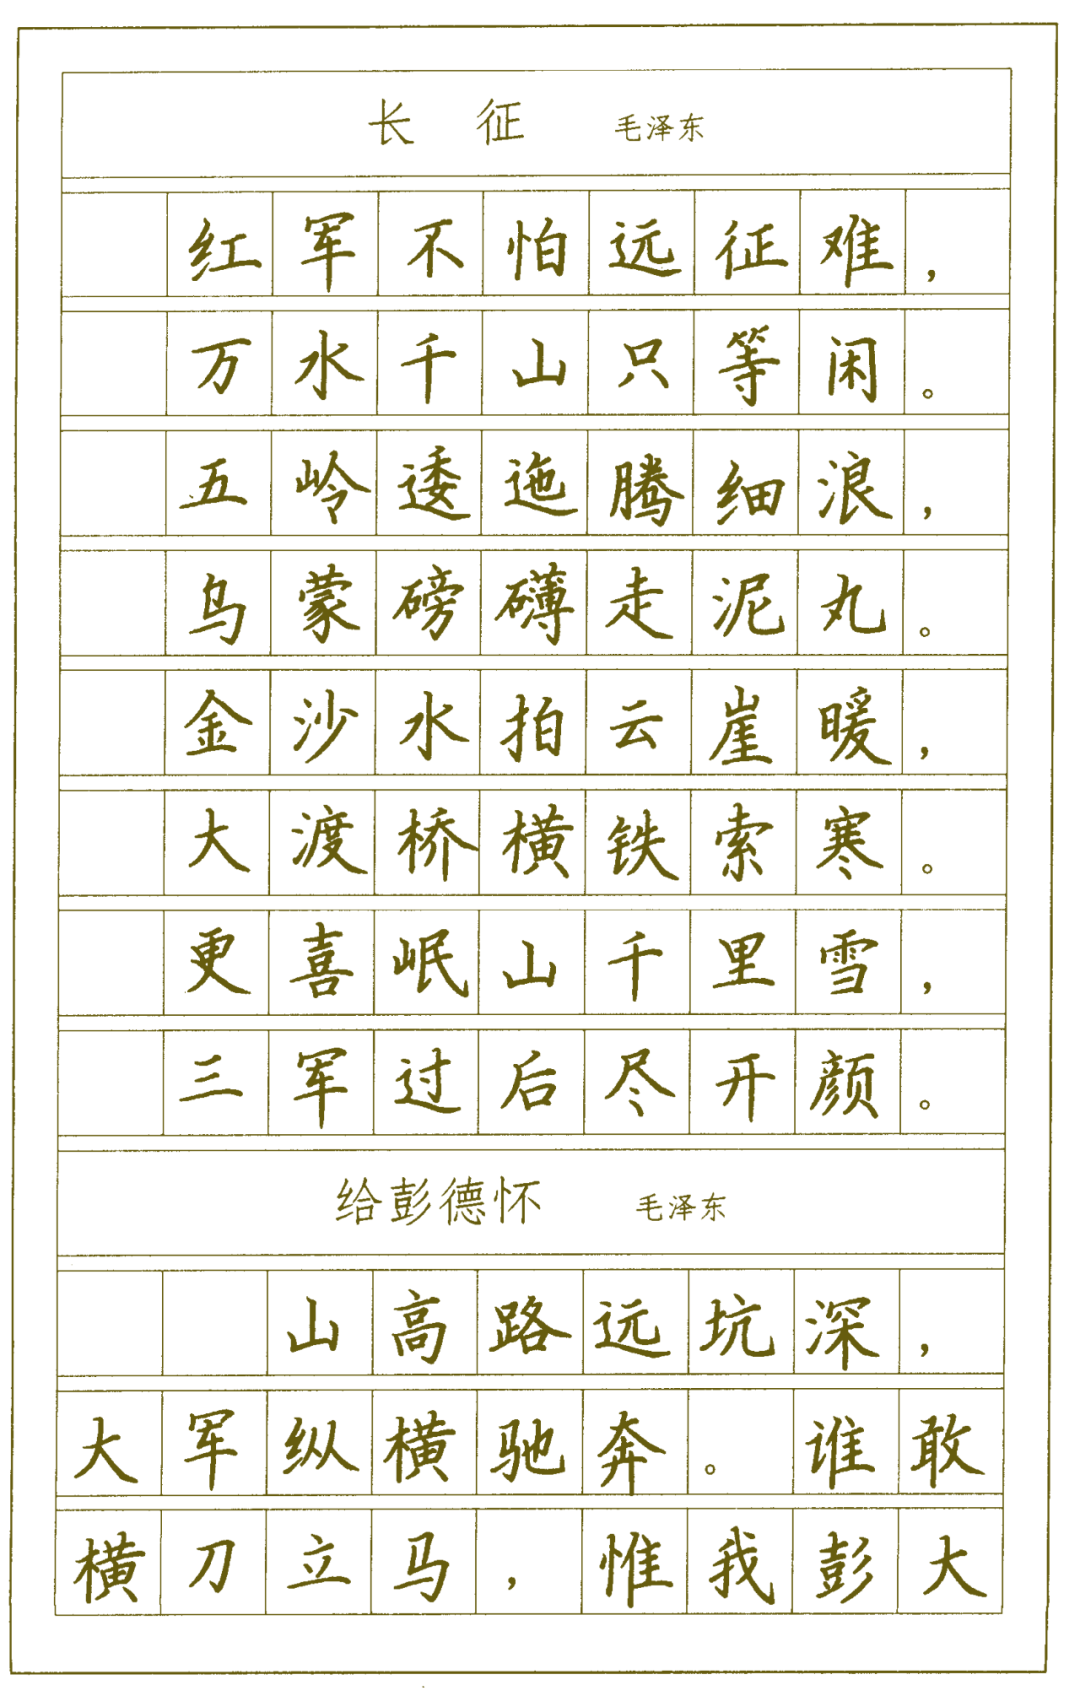 长 征 毛泽东
红军不怕远征难，
万水千山只等闲。
五岭逶迤腾细浪，
乌蒙磅礴走泥丸。
金沙水拍云崖暖，
大渡桥横铁索寒。
更喜岷山千里雪，
三军过后尽开颜。
给彭德怀 毛泽东
山高路远坑深，
大军纵横驰奔。谁敢
横刀立马，惟我彭大